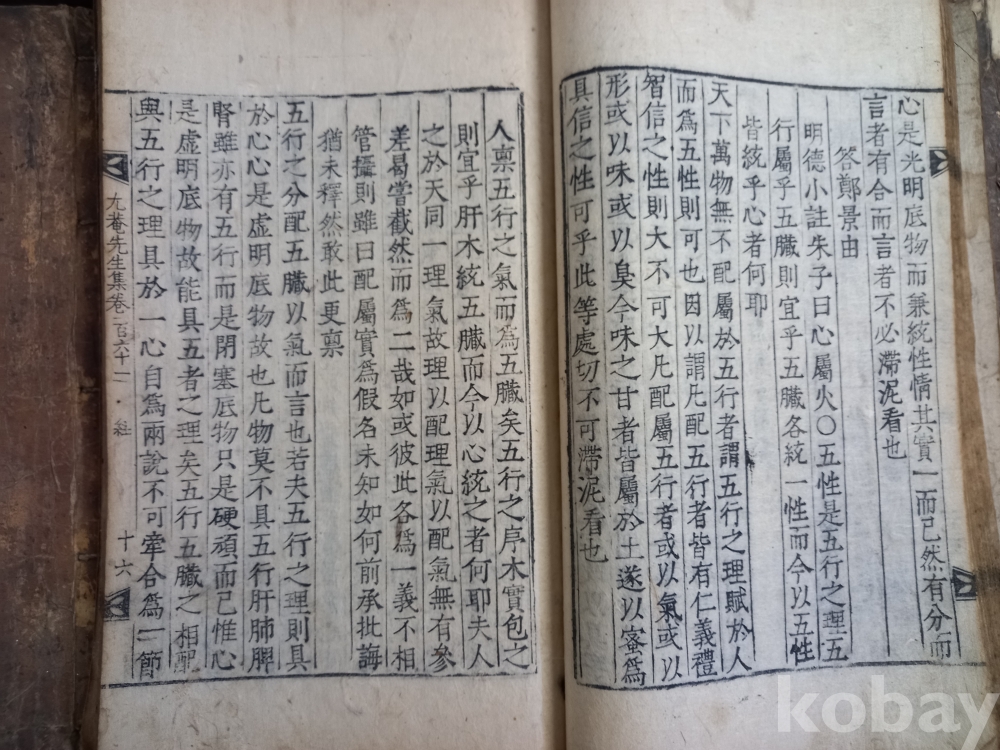 心是光明底物而兼統性情其實一而已然有分而
言者有合而言者不必滯泥看也
答鄭景由
明德小註朱子曰心屬火〇五性是五行之理五
行屬乎五臟則宜乎五臟各統一性而今以五性
皆統乎心者何耶
天下萬物無不配屬於五行者謂五行之理賦於人
而爲五性則可也因以謂凡配五行者皆有仁義禮
智信之性則大不可大凡配屬五行者或以氣或以
形或以味或以臭今味之甘者皆屬於土遂以蜜爲
具信之性可乎此等處切不可滯泥看也
人稟五行之氣而爲五臟矣五行之序木實包之
則宜乎肝木統五臟而今以心統之者何耶夫人
之於天同一理氣故理以配理氣以配氣無有參
差曷嘗截然而爲二哉如或彼此各爲一義不相
管攝則雖曰配屬實爲假名未知如何前承批誨
猶未釋然敢此更稟
五行之分配五臟以氣而言也若夫五行之理則具
於心心是虛明底物故也凡物莫不具五行肝肺脾
腎雖亦有五行而是閉塞底物只是硬頑而已惟心
是虛明底物故能具五者之理矣五行五臟之相配
與五行之理具於一心自爲兩說不可牽合爲一節
尤菴先生集卷一百六十二
十六
kobay